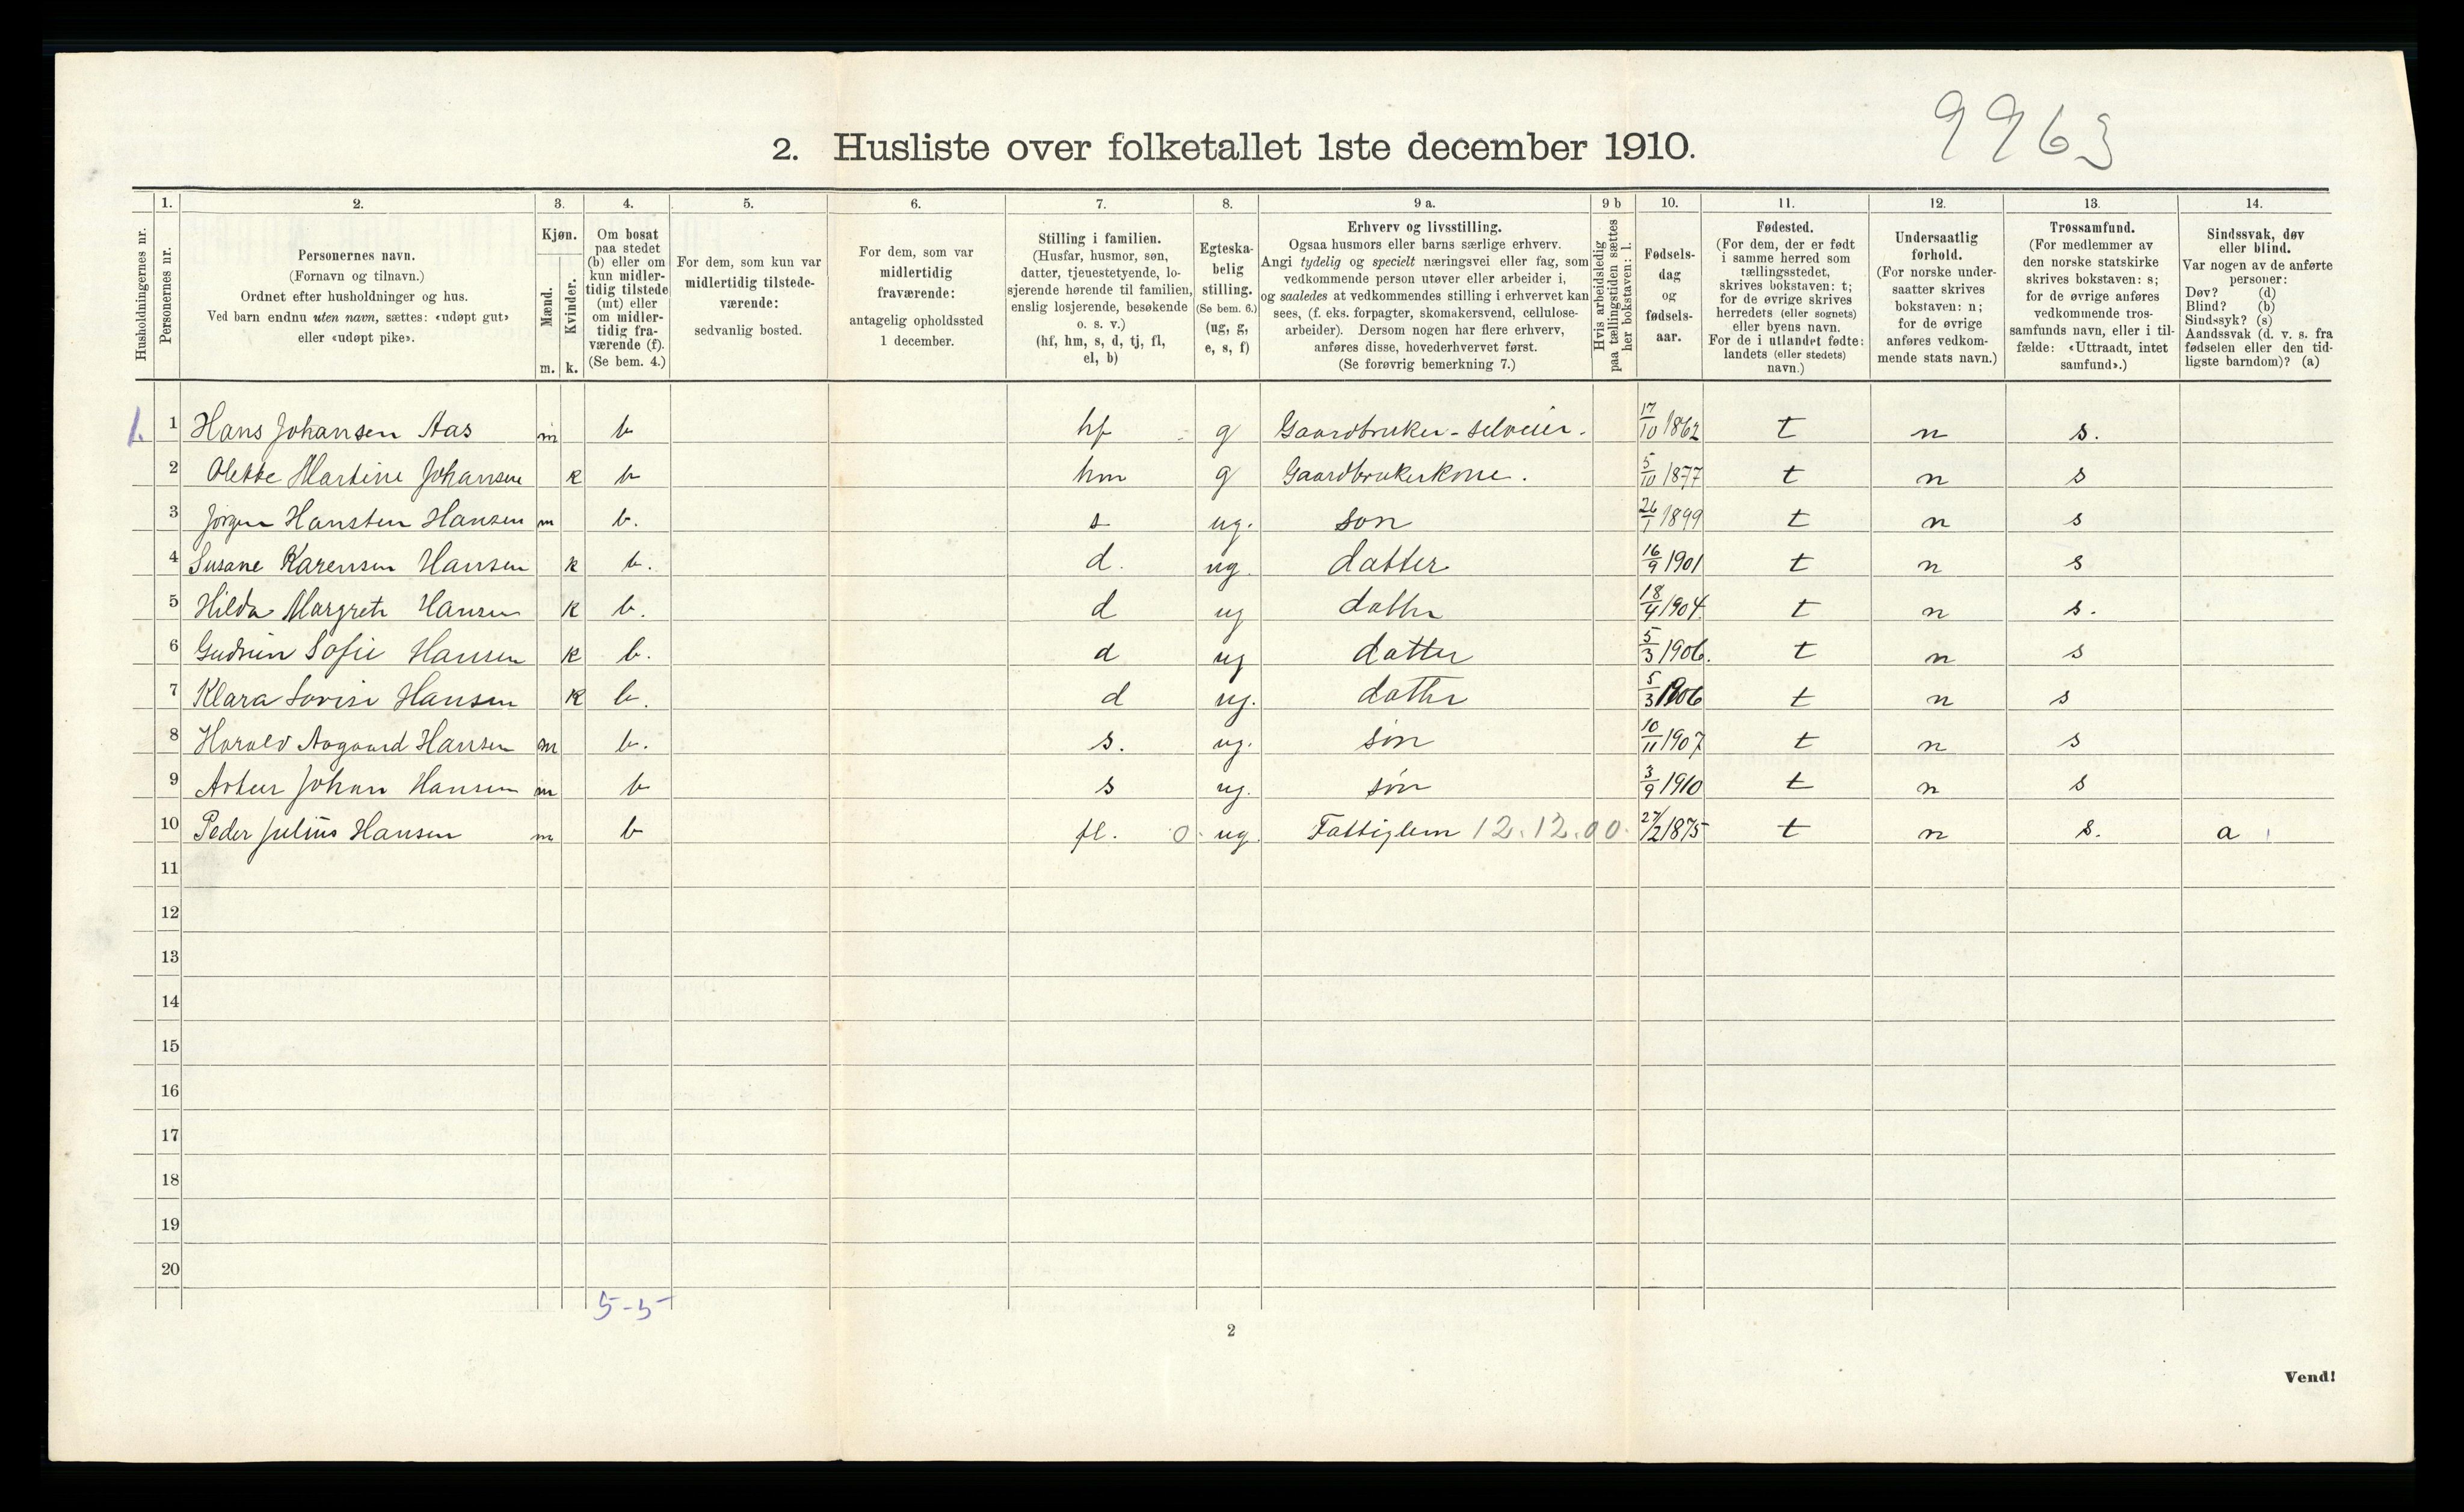 9963
2. Husliste over folketallet 1ste december 1910.
Husholdningernes nr.
1. Personernes nr.
2. Personernes navn. (Fornavn og tilnavn.) Ordnet efter husholdninger og hus. Ved barn endnu uten navn, sættes: «udøpt gut» eller «udøpt pike».
3. Kjøn. Mænd. m. Kvinder. k.
4. Om bosat paa stedet (b) eller om kun midler-tidig tilstede (mt) eller om midler-tidig fra-værende (f). (Se bem. 4.)
5. For dem, som kun var midlertidig tilstede-værende: sedvanlig bosted.
6. For dem, som var midlertidig fraværende: antagelig opholdssted 1 december.
7. Stilling i familien. (Husfar, husmor, søn, datter, tjenestetyende, lo-sjerende hørende til familien, enslig losjerende, besøkende o. s. v.) (hf, hm, s, d, tj, fl, el, b)
8. Egteska-belig stilling. (Se bem. 6.) (ug, g, e, s, f)
9 a. Erhverv og livsstilling. Ogsaa husmors eller barns særlige erhverv. Angi tydelig og specielt næringsvei eller fag, som vedkommende person utøver eller arbeider i, og saaledes at vedkommendes stilling i erhvervet kan sees, (f. eks. forpagter, skomakersvend, cellulose-arbeider). Dersom nogen har flere erhverv, anføres disse, hovederhvervet først. (Se forøvrig bemerkning 7.)
9 b Hvis arbeidsledig paa tællingstiden sættes her bokstaven: l.
10. Fødsels-dag og fødsels-aar.
11. Fødested. (For dem, der er født i samme herred som tællingsstedet, skrives bokstaven: t; for de øvrige skrives herredets (eller sognets) eller byens navn. For de i utlandet fødte: landets (eller stedets) navn.)
12. Undersaatlig forhold. (For norske under-saatter skrives bokstaven: n; for de øvrige anføres vedkom-mende stats navn.)
13. Trossamfund. (For medlemmer av den norske statskirke skrives bokstaven: s; for de øvrige anføres vedkommende tros-samfunds navn, eller i til-fælde: «Uttraadt, intet samfund».)
14. Sindssvak, døv eller blind. Var nogen av de anførte personer: Døv? (d) Blind? (b) Sindssyk? (s) Aandssvak (d. v. s. fra fødselen eller den tid-ligste barndom)? (a)
1. 1 Hans Johansen Aas m b hf g Gaardbruker-selveier. 17/10 1862 t n s.
2 Olette Martine Johansen k b hm g Gaardbrukerkone. 5/10 1877 t n s
3 Jørgen Hansten Hansen m b. s ug. søn 26/1 1899 t n s
4 Susane Karensen Hansen k b. d. ug. datter 16/9 1901 t n s
5 Hilda Margrete Hansen k b. d ug datter 18/4 1904. t n s.
6 Gudrun Sofie Hansen k b. d ug datter 5/3 1906. t n s
7 Klara Lovise Hansen k b. d ug. datter 5/3 1906 t n s
8 Harald Aagaard Hansen m b. s. ug. søn 10/11 1907 t n s
9 Artur Johan Hansen m b s ug. søn 3/9 1910 t n s
10 Peder Julius Hansen m b fl. 0 ug. Fattiglem 12.12.00. 27/2 1875 t n s. a
11
12
13
14
15
16
17
18
19
20
5-5
2
Vend!